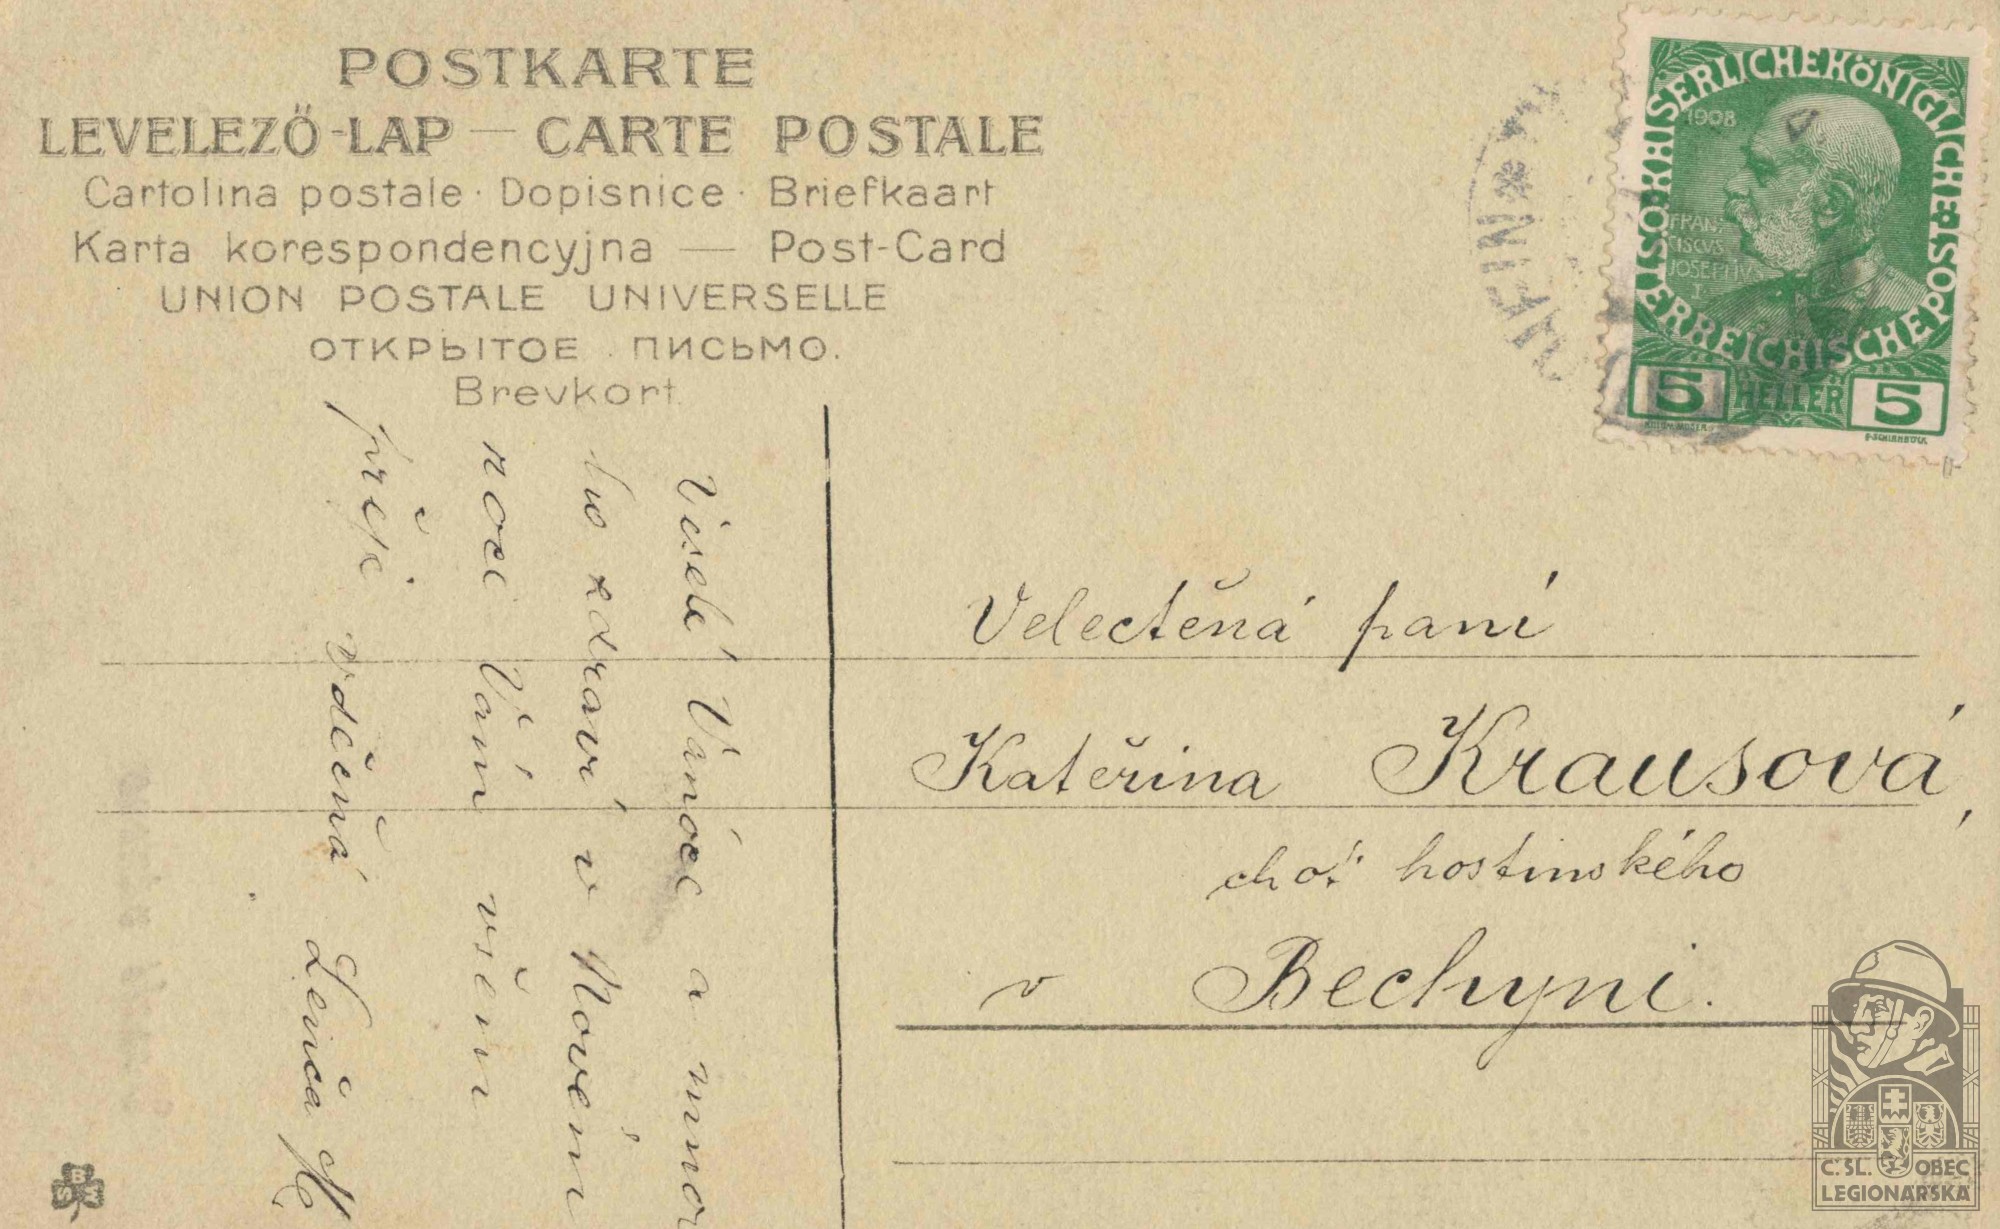 POSTKARTE
LEVELEZŐ-LAP — CARTE POSTALE
Cartolina postale · Dopisnice · Briefkaart
Karta korespondencyjna — Post-Card
UNION POSTALE UNIVERSELLE
ОТКРЫТОЕ ПИСЬМО.
Brevkort.
Veselé Vánoce a mno
ho zdraví v Novém
roce Vám všem
přeje vděčná Lenča
Velectěná paní
Kateřina Krausová,
choť hostinského
v Bechyni.
KAISERLICHEKÖNIGLICHE
ÖSTERREICHISCHEPOST
1908
FRAN
CISCVS
JOSEPHVS
I
5 HELLER 5
C.SL. OBEC
LEGIONÁŘSKÁ